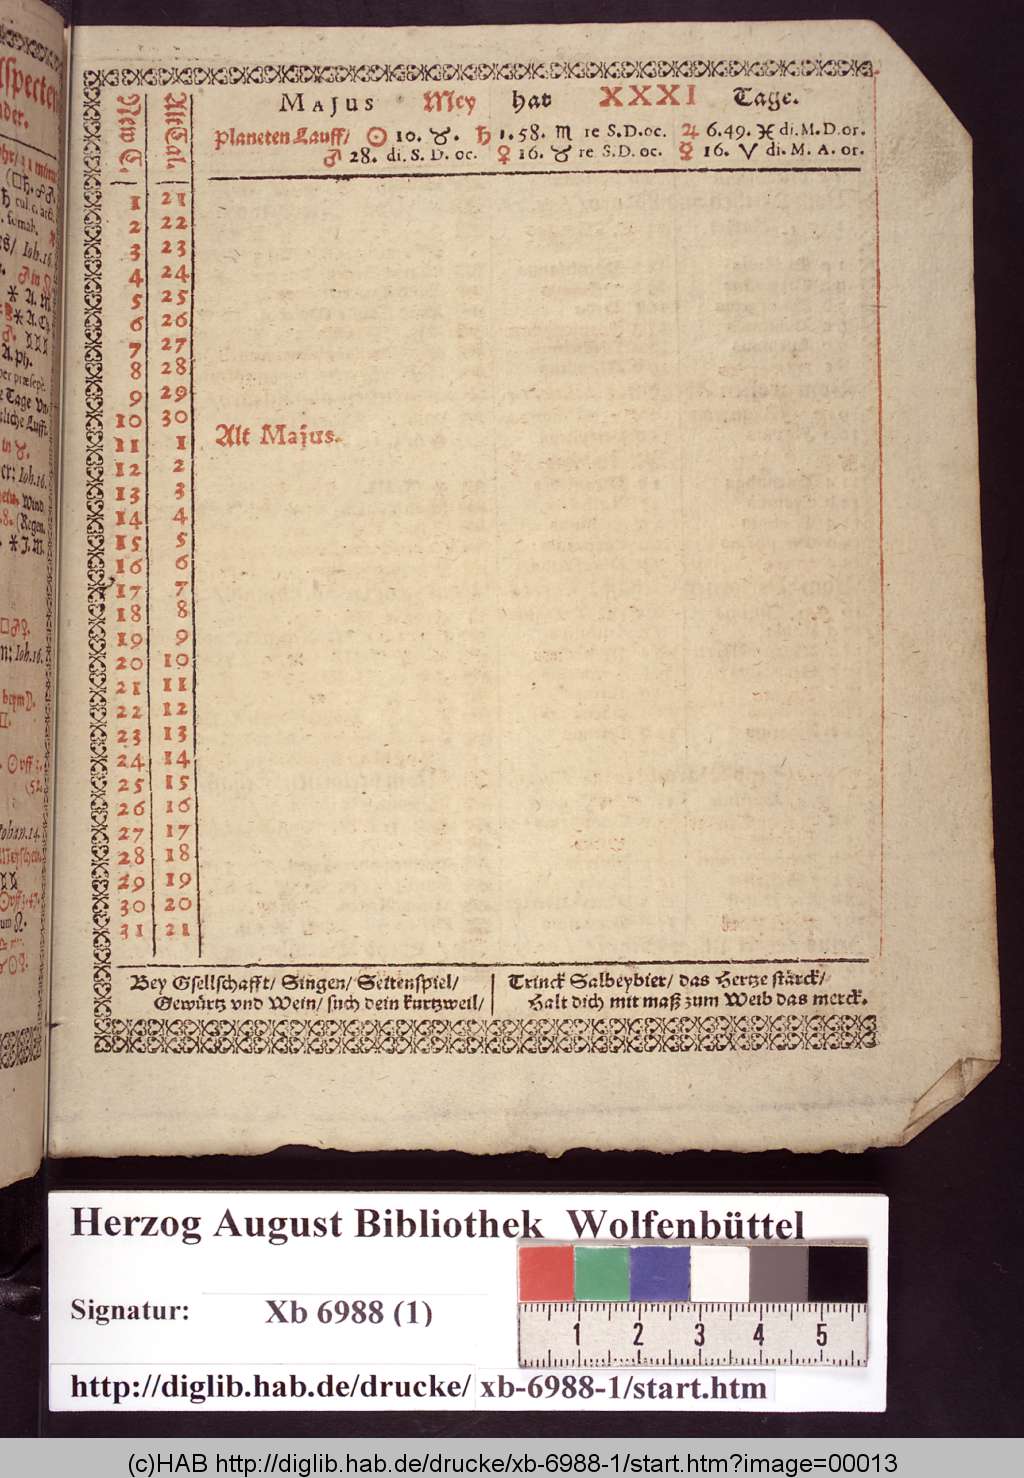 Majus Mey hat XXXI Tage.
Planeten Lauff/ ☉ 10. ♉. ♄ 1.58. ♏ re S.D.oc. ♃ 6.49. ♓ di. M.D.or.
♂ 28. di. S. D. oc. ♀ 16. ♉ re S.D. oc. ☿ 16. ♈ di. M. A. or.
New C. Alt Cal.
1 21
2 22
3 23
4 24
5 25
6 26
7 27
8 28
9 29
10 30
11 1 Alt Majus.
12 2
13 3
14 4
15 5
16 6
17 7
18 8
19 9
20 10
21 11
22 12
23 13
24 14
25 15
26 16
27 17
28 18
29 19
30 20
31 21
Bey Gsellschafft/ Singen/ Seitenspiel/
Gewürtz vnd Wein/ such dein kurtzweil/
Trinck Salbeybier/ das Hertze stärck/
Halt dich mit maß zum Weib das merck.
Herzog August Bibliothek Wolfenbüttel
Signatur: Xb 6988 (1)
1 2 3 4 5
http://diglib.hab.de/drucke/ xb-6988-1/start.htm
(c)HAB http://diglib.hab.de/drucke/xb-6988-1/start.htm?image=00013